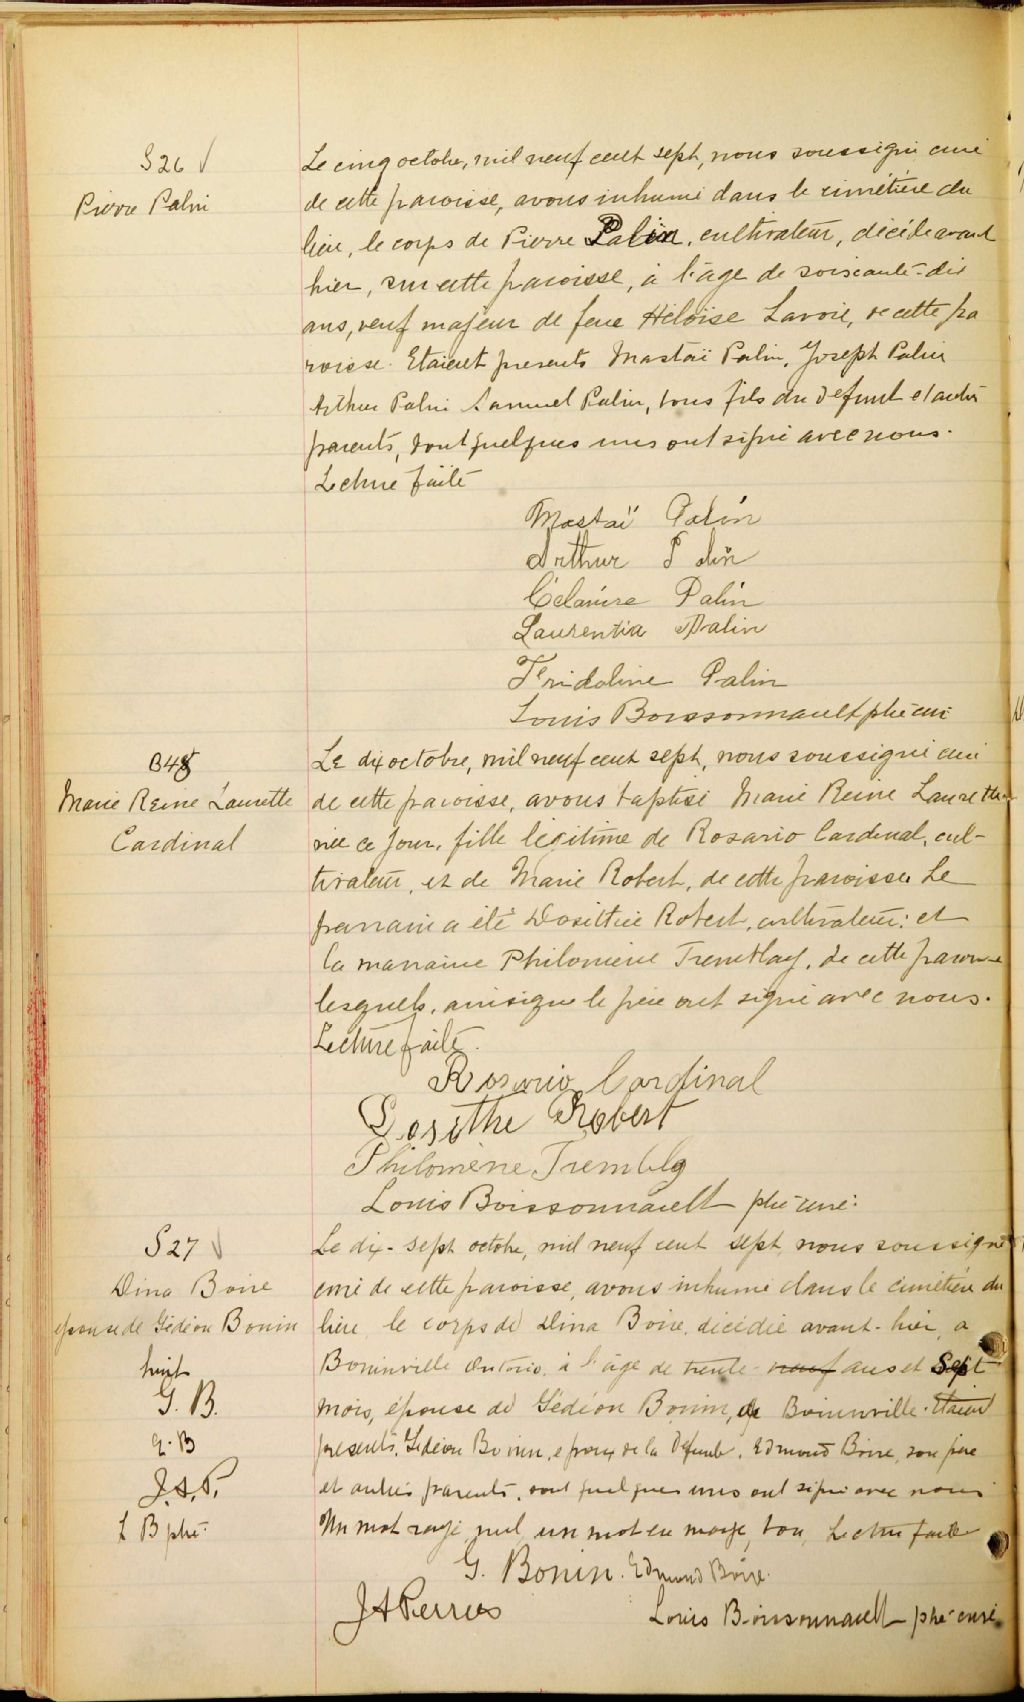 S26 √
Pierre Palin
Le cinq octobre, mil neuf cent sept, nous soussigné curé
de cette paroisse, avons inhumé dans le cimétière du
lieu, le corps de Pierre Palin, cultivateur, décédé avant
hier, sur cette paroisse, à l'âge de soixante-dix
ans, veuf majeur de feue Héloïse Lavoie, de cette pa
roisse. Etaient présents Mastaï Palin, Joseph Palin
Arthur Palin Samuel Palin, tous fils du défunt et autres
parents, dont quelques uns ont signé avec nous.
Lecture faite
Mastaï Palin
Arthur Palin
Célanire Palin
Laurentia Palin
Fridoline Palin
Louis Boissonnault ptre curé
B48
Marie Reine Laurette
Cardinal
Le dix octobre, mil neuf cent sept, nous soussigné curé
de cette paroisse, avons baptisé Marie Reine Laurette
née ce jour, fille légitime de Rosario Cardinal, cul-
tivateur, et de Marie Robert, de cette paroisse. Le
parrain a été Dosithée Robert, cultivateur; et
la marraine Philomène Tremblay, de cette paroisse
lesquels, ainsi que le père ont signé avec nous.
Lecture faite.
Rosario Cardinal
Dosithé Robert
Philomène Trembly
Louis Boissonnault ptre curé.
S27 √
Dina Boire
épouse de Gédéon Bonin
Le dix-sept octobre, mil neuf cent sept, nous soussigné
curé de cette paroisse, avons inhumé dans le cimétière du
lieu, le corps de Dina Boire, décédée avant-hier, à
Boninville Ontario, à l'âge de trente-neuf ans et sept
mois, épouse de Gédéon Bonin, de Boninville. Etaient
présents, Gédéon Bonin, époux de la défunte, Edmond Boire, son père
et autres parents, dont quelques uns ont signé avec nous
Un mot rayé nul, un mot en marge, bon, Lecture faite
huit
G. B.
E. B
J. A. P.
L B ptre
G. Bonin. Edmond Boire.
J A Perras
Louis Boissonnault ptre curé